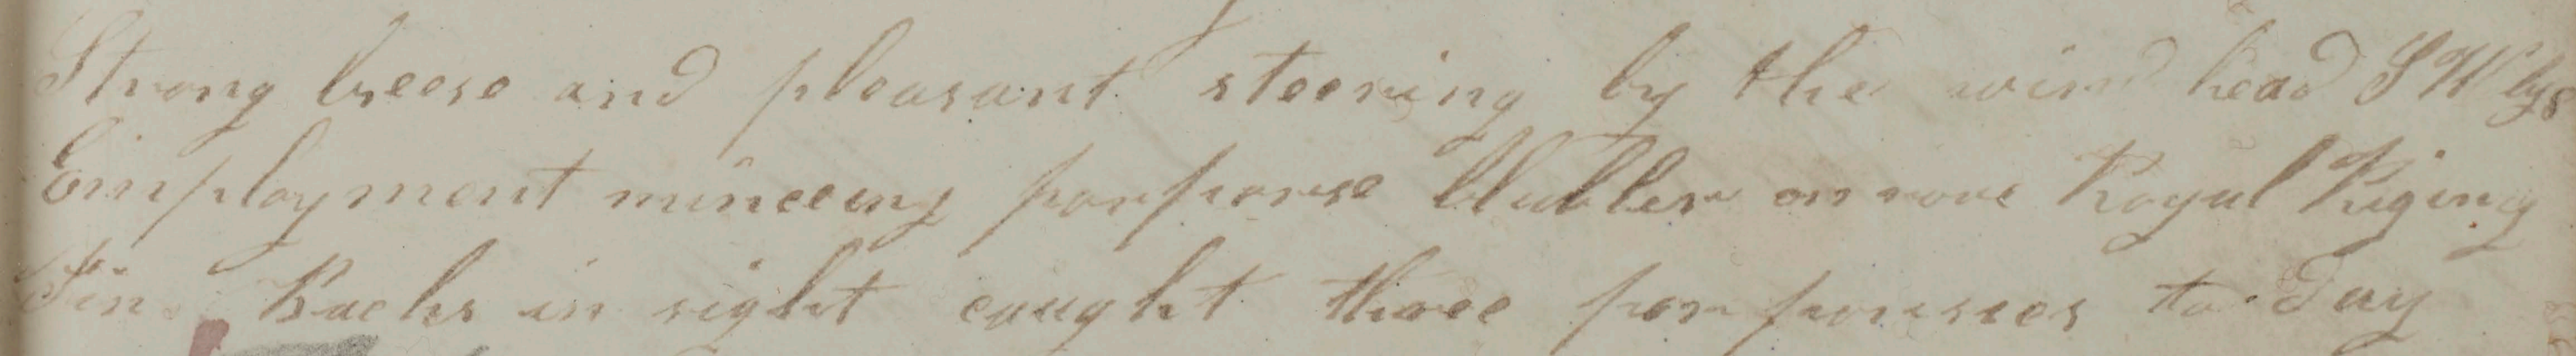 Strong breese and pleasant steering by the wind head S W by S
Employment minceing porporse blubber on Royal Riging
Fin Backs in sight caught three porporsses to day